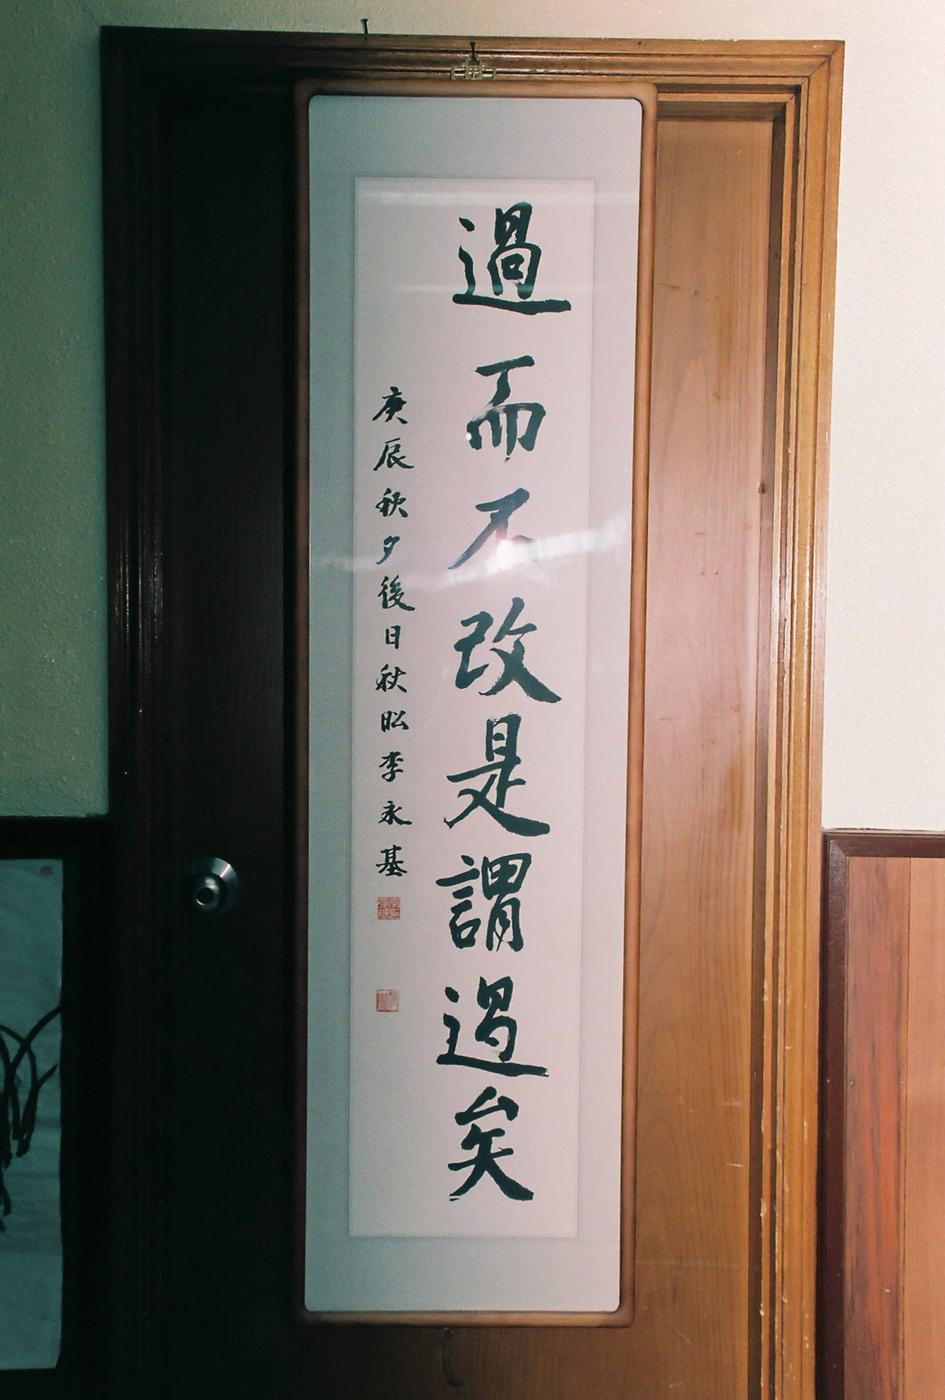 過而不改是謂過矣
庚辰秋夕後日秋昖李永基